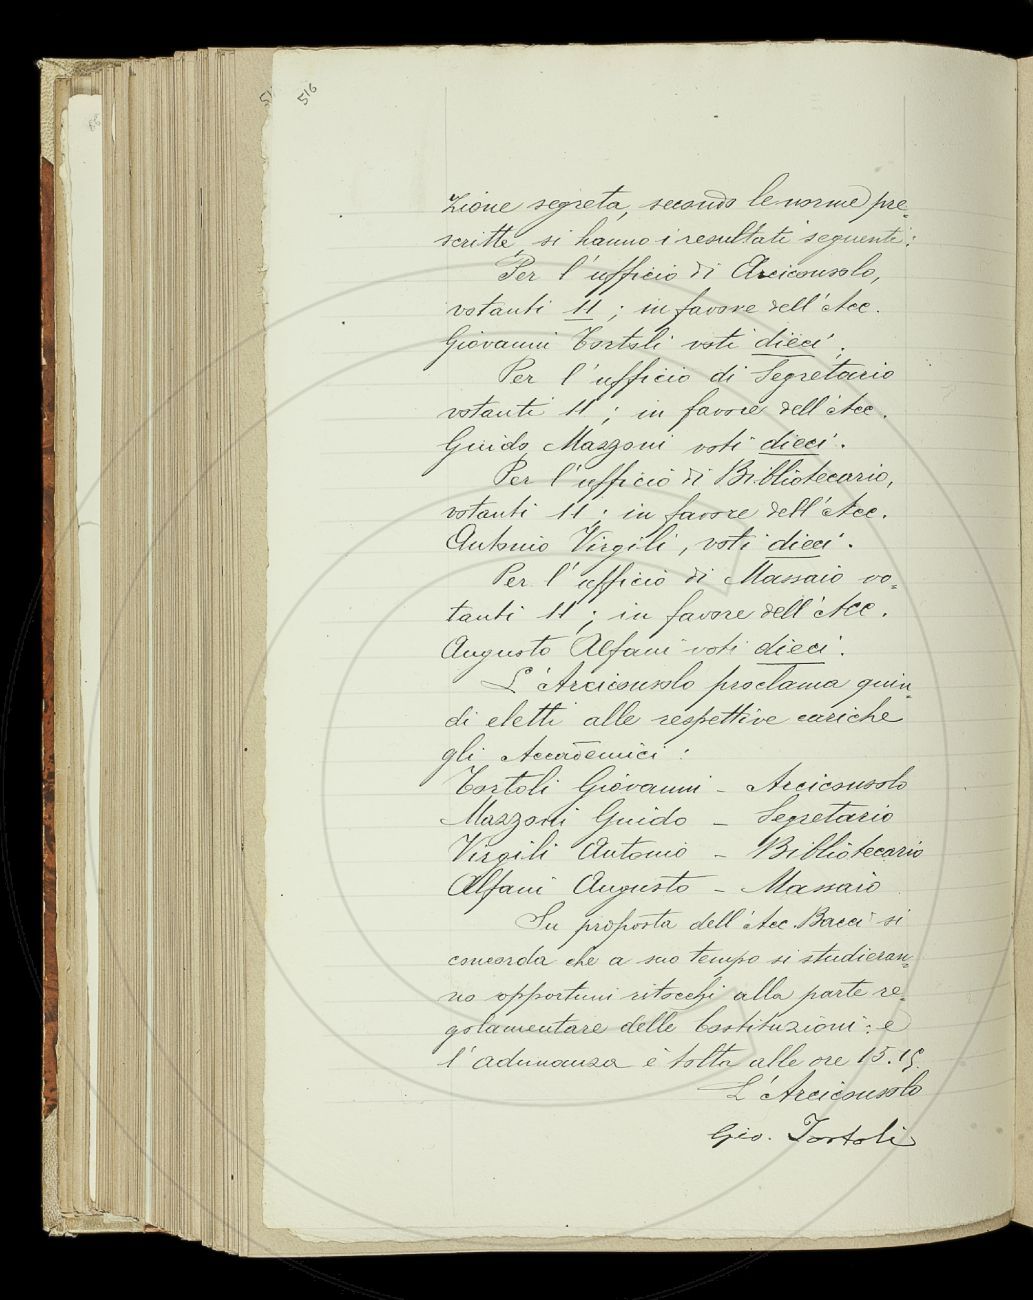 516
zione segreta, secondo le norme pre-
scritte, si hanno i resultati seguenti:
Per l'ufficio di Arciconsolo,
votanti 11; in favore dell'Acc.
Giovanni Tortoli voti dieci.
Per l'ufficio di Segretario
votanti 11; in favore dell'Acc.
Guido Mazzoni voti dieci.
Per l'ufficio di Bibliotecario,
votanti 11; in favore dell'Acc.
Antonio Virgili, voti dieci.
Per l'ufficio di Massaio vo-
tanti 11; in favore dell'Acc.
Augusto Alfani voti dieci.
L'Arciconsolo proclama quin-
di eletti alle respettive cariche
gli Accademici:
Tortoli Giovanni - Arciconsolo
Mazzoni Guido - Segretario
Virgili Antonio - Bibliotecario
Alfani Augusto - Massaio
Su proposta dell'Acc. Bacci si
concorda che a suo tempo si studieran-
no opportuni ritocchi alla parte re-
golamentare delle Costituzioni: e
l'adunanza è tolta alle ore 15.15.
L'Arciconsolo
Gio. Tortoli